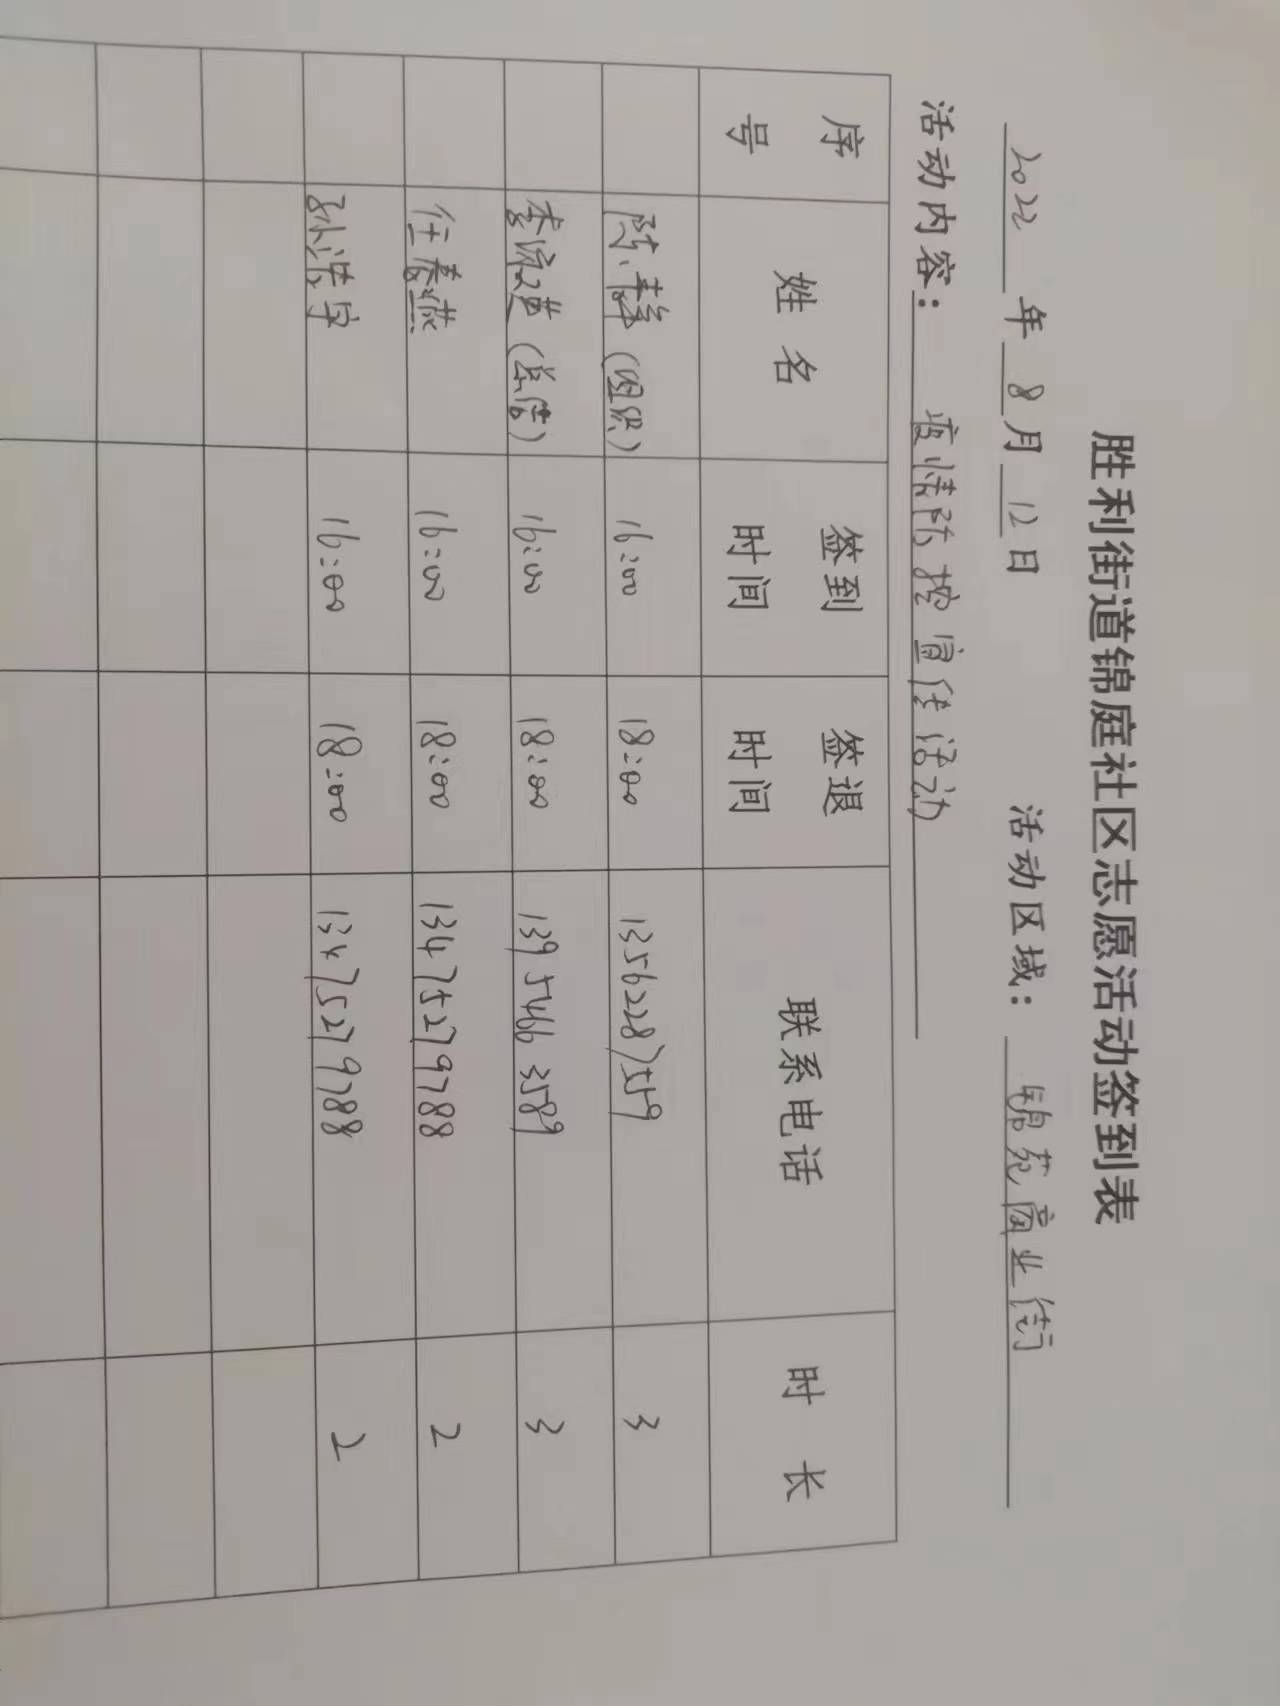 胜利街道锦庭社区志愿活动签到表
2022年8月12日 活动区域：锦苑商业街
活动内容：疫情防控宣传活动
序号 姓名 签到时间 签退时间 联系电话 时长
陈（组织） 16:00 18:00 13562287559 3
李（总结） 16:00 18:00 13954663589 3
任春燕 16:00 18:00 13475279788 2
孙浩宇 16:00 18:00 13475279788 2